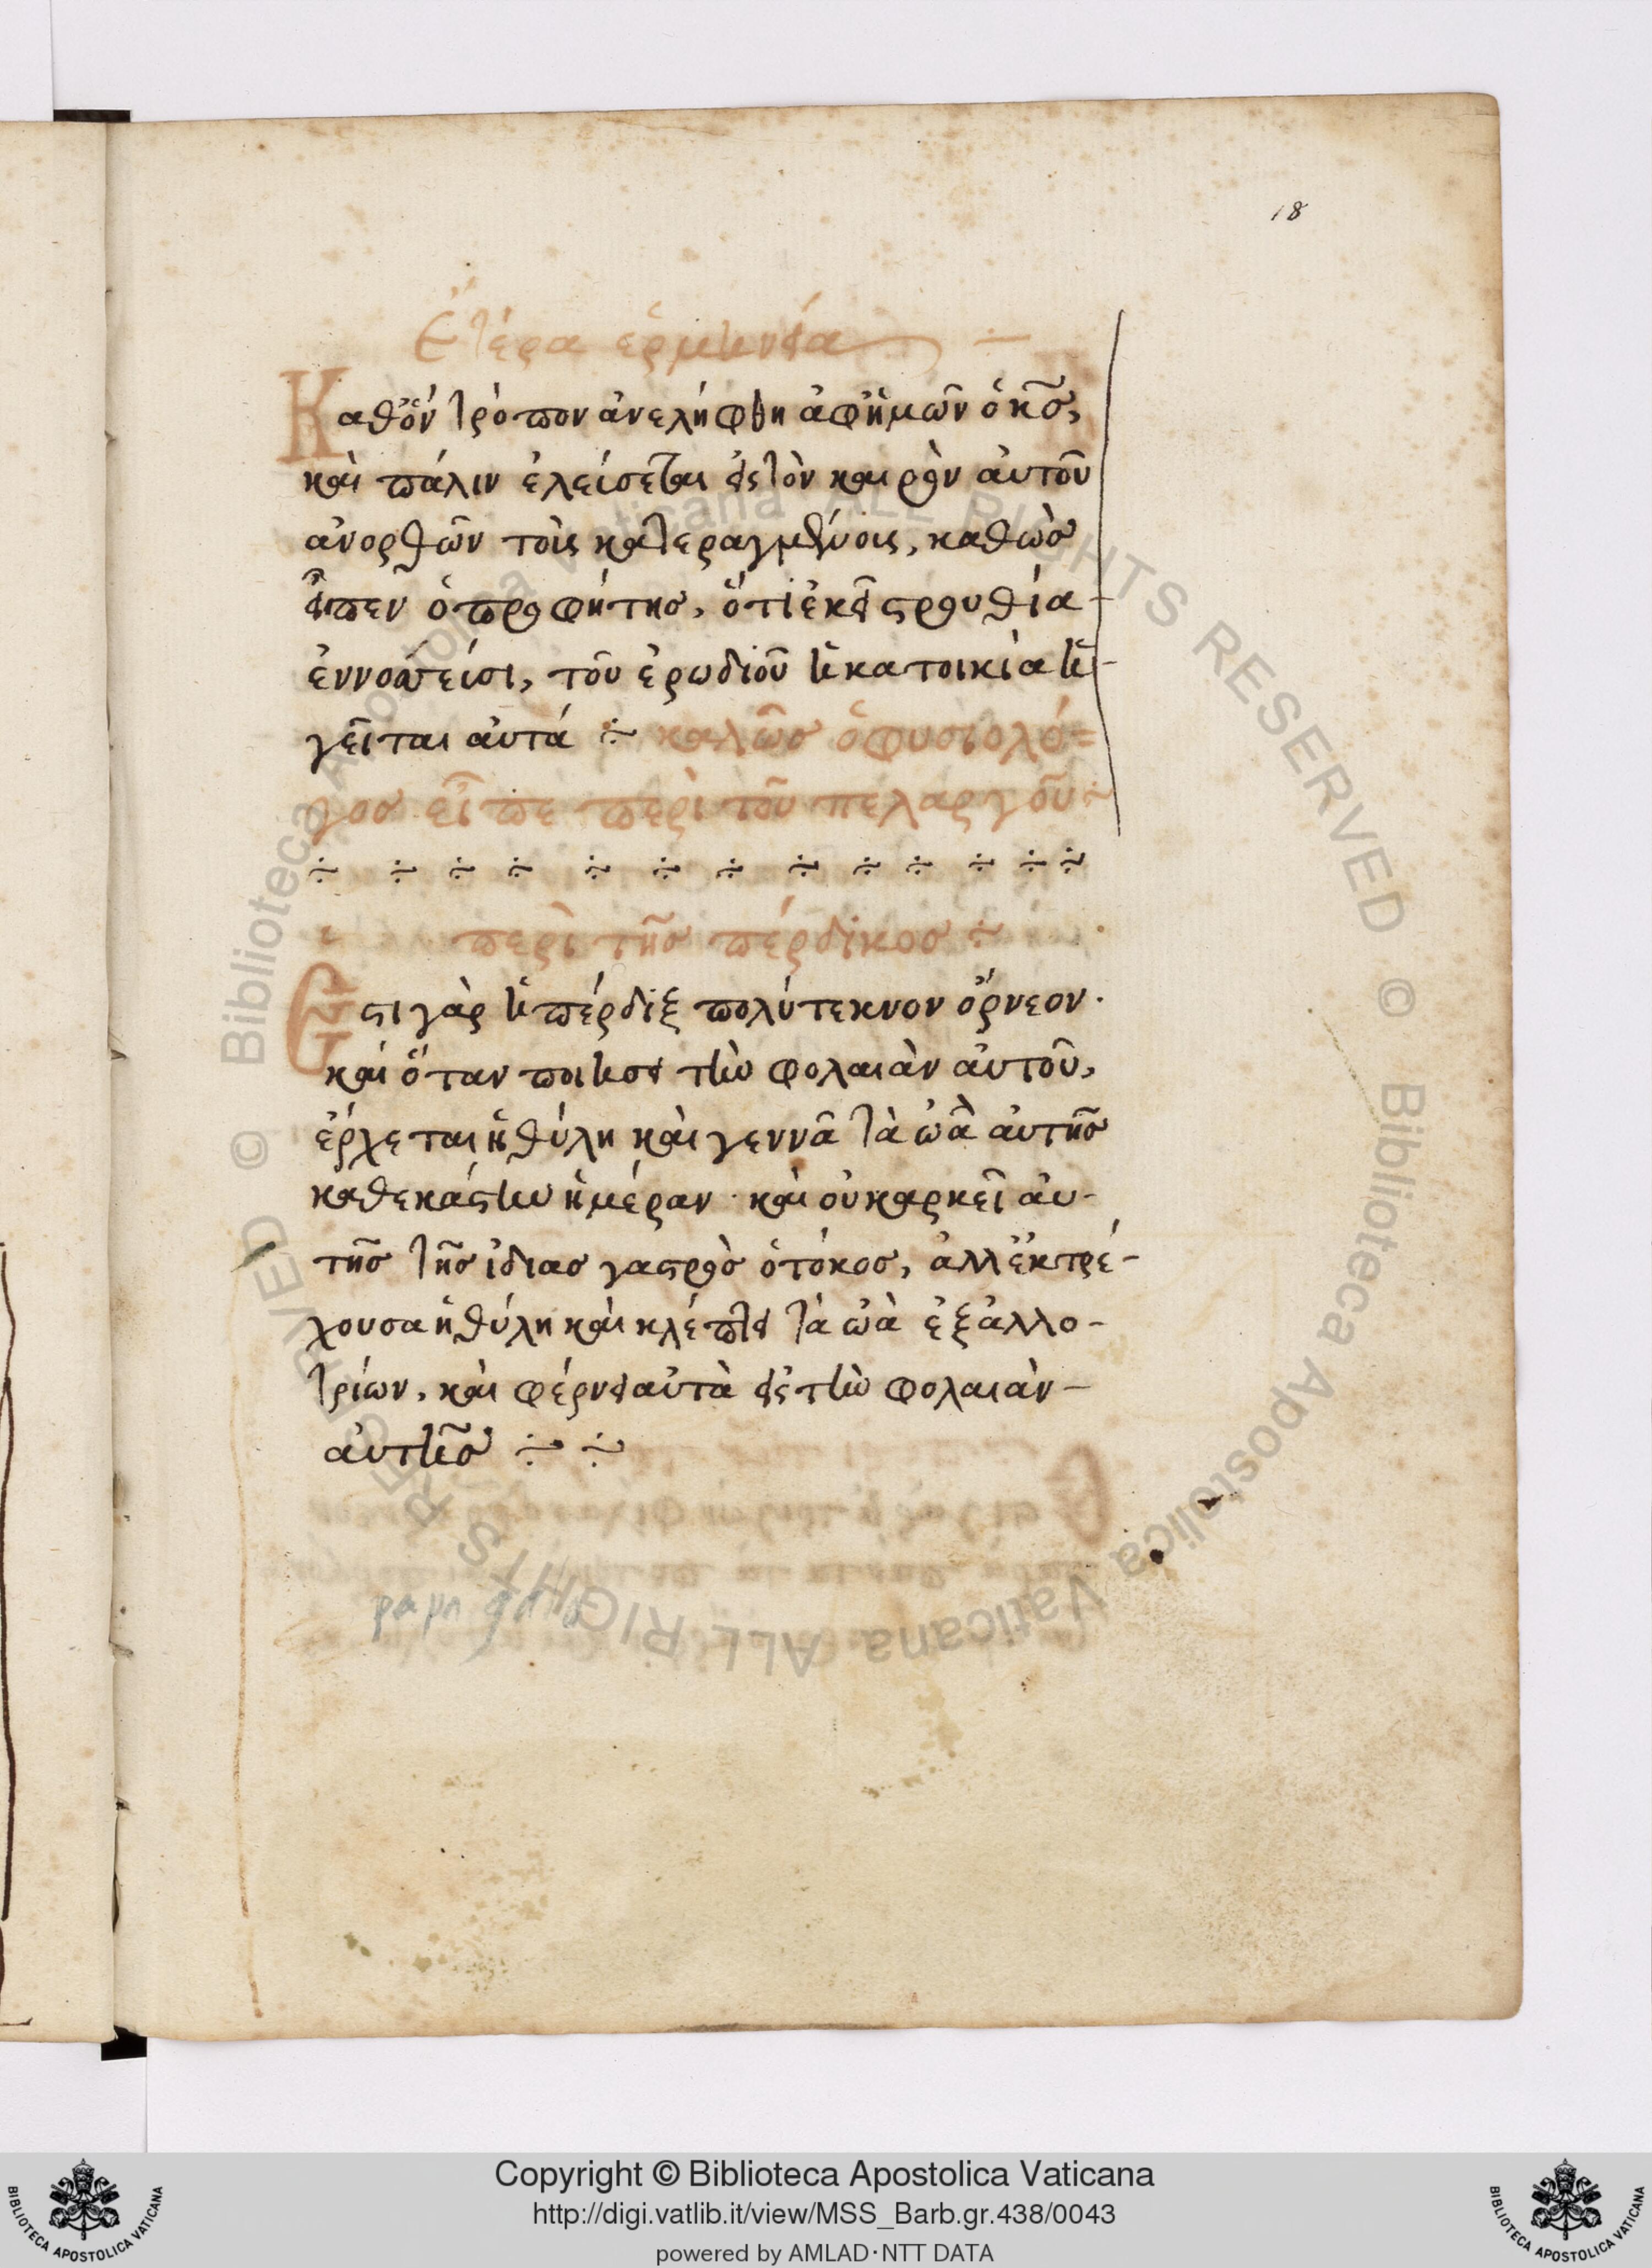 18
Ἑτέρα ἑρμηνεία
Καθὃν τρόπον ἀνελήφθη ἀφἡμῶν ὁ κ̅ς̅,
καὶ πάλιν ἐλείσεται εἰς τὸν καιρὸν αὐτοῦ
ἀνορθῶν τοῖς κατεραγμένοις, καθὼς
εἶπεν ὁ προφήτης, ὅτι ἐκεῖ στρουθία
ἐννοσεύσι, τοῦ ἐρωδιοῦ ἡ κατοικία ἡ
γεῖται αὐτά ÷ καλῶς ὁ φυσιολό=
γος εἶπε περὶ τοῦ πελαργοῦ ÷
÷ ÷ ÷ ÷ ÷ ÷ ÷ ÷ ÷ ÷ ÷ ÷ ÷
περὶ τῆς πέρδικος ÷
Ἔστι γὰρ ἡ πέρδιξ πολύτεκνον ὄρνεον·
καὶ ὅταν ποιήσει τὴν φολαιὰν αὐτοῦ,
ἔρχεται ἡ θύλη καὶ γεννᾶ τὰ ὠὰ αὐτῆς
καθεκάστην ἡμέραν· καὶ οὐκ αρκεῖ αὐ-
τῆς τῆς ἰδιας γαστρὸς ὁ τόκος, ἀλλ ἐκτρέ-
χουσα ἡ θύλη καὶ κλέπτει τὰ ὠὰ ἐξ ἀλλο-
τρίων, καὶ φέρνει αὐτὰ εἰς τὴν φολαιὰν-
αὐτῆς ÷ ÷
© Biblioteca Apostolica Vaticana ALL RIGHTS RESERVED © Biblioteca Apostolica Vaticana ALL RIGHTS RESERVED
Copyright © Biblioteca Apostolica Vaticana
http://digi.vatlib.it/view/MSS_Barb.gr.438/0043
powered by AMLAD·NTT DATA
BIBLIOTECA APOSTOLICA VATICANA
BIBLIOTECA APOSTOLICA VATICANA